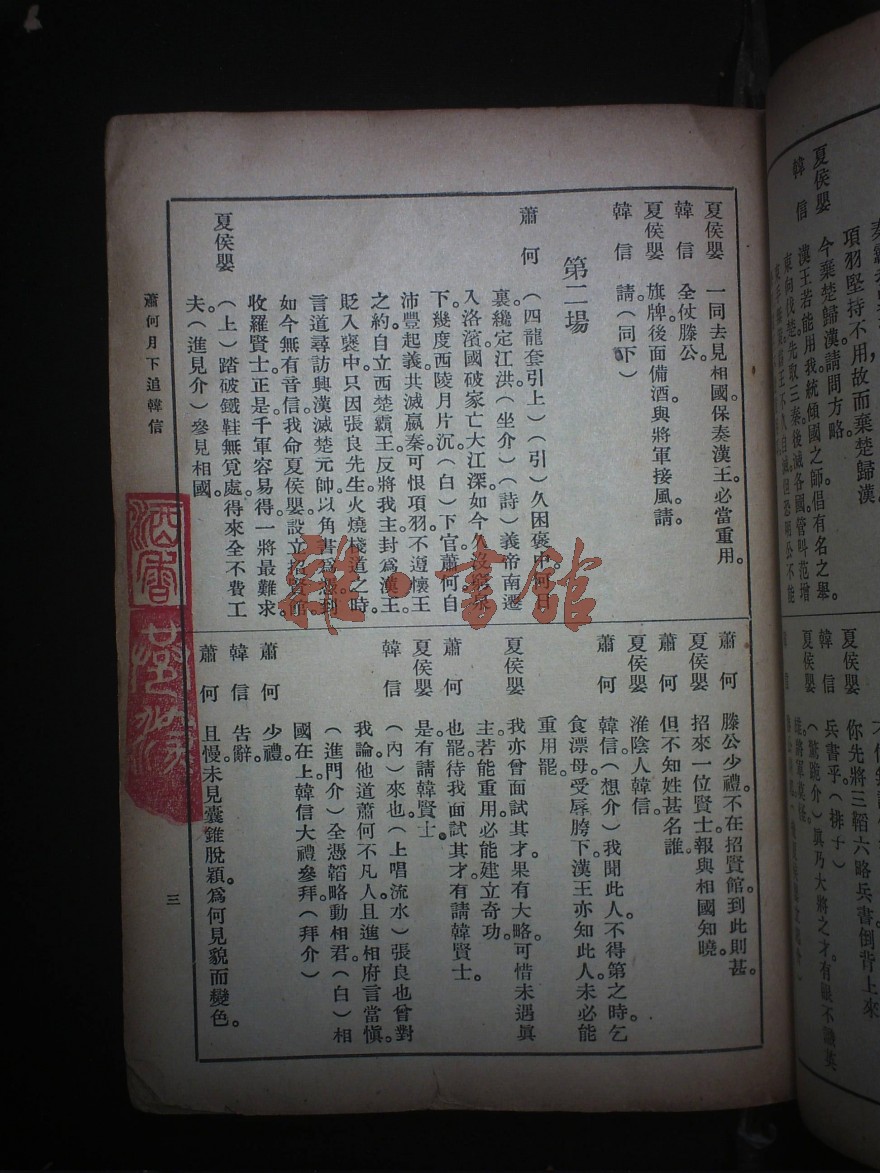 夏侯嬰 一同去見相國。保奏漢王。必當重用。
韓信 全仗滕公。
夏侯嬰 旗牌後面備酒與將軍接風。請。
韓信 請。(同下)
第二場
蕭何 (四龍套引上)(引)久困褒中。何日
裏纔定江洪。(坐介)(詩)義帝南遷
入洛濱。國破家亡大江深。如今久沒窮泉
下。幾度西陵月片沉。(白)下官蕭何。自
沛豐起義。共滅嬴秦。可恨項羽不遵懷王
之約。自立西楚霸王。反將我主封爲漢王。
貶入褒中。只因張良先生火燒棧道之時。
言道尋訪興漢滅楚元帥。以角書爲憑。到
如今無有音信。我命夏侯嬰設立招賢館。
收羅賢士。正是千軍容易得。一將最難求。
夏侯嬰 (上)踏破鐵鞋無覓處。得來全不費工
夫。(進見介)參見相國。
蕭何 滕公少禮。不在招賢館。到此則甚。
夏侯嬰 招來一位賢士。報與相國知曉。
蕭何 但不知姓甚名誰。
夏侯嬰 淮陰人韓信。
蕭何 韓信。(想介)我聞此人不得第之時。乞
食漂母。受辱胯下。漢王亦知此人。未必能
重用罷。
夏侯嬰 我亦曾面試其才。果有大略。可惜未遇眞
主。若能重用。必能建立奇功。
蕭何 也罷。待我面試其才。有請韓賢士。
夏侯嬰 是。有請韓賢士。
韓信 (內)來也。(上唱流水)張良也曾對
我論。他道蕭何不凡人。且進相府言當愼。
(進門介)全憑韜略動相君。(白)相
國在上。韓信大禮參拜。(拜介)
蕭何 少禮。
韓信 告辭。
蕭何 且慢。未見囊錐脫穎。爲何見貌而變色。
蕭何月下追韓信
三
雜書館
項羽堅持不用。故而棄楚歸漢
夏侯嬰 今棄楚歸漢。請問方略。
韓信 漢王若能用我。統傾國之師。倡有名之舉。
東向伐楚。先取三秦。後滅各國。管叫范增
夏侯嬰 你先將三韜六略兵書倒背上來
韓信 兵書乎。(排子)
夏侯嬰 (驚跪介)眞乃大將之才。有眼不識英